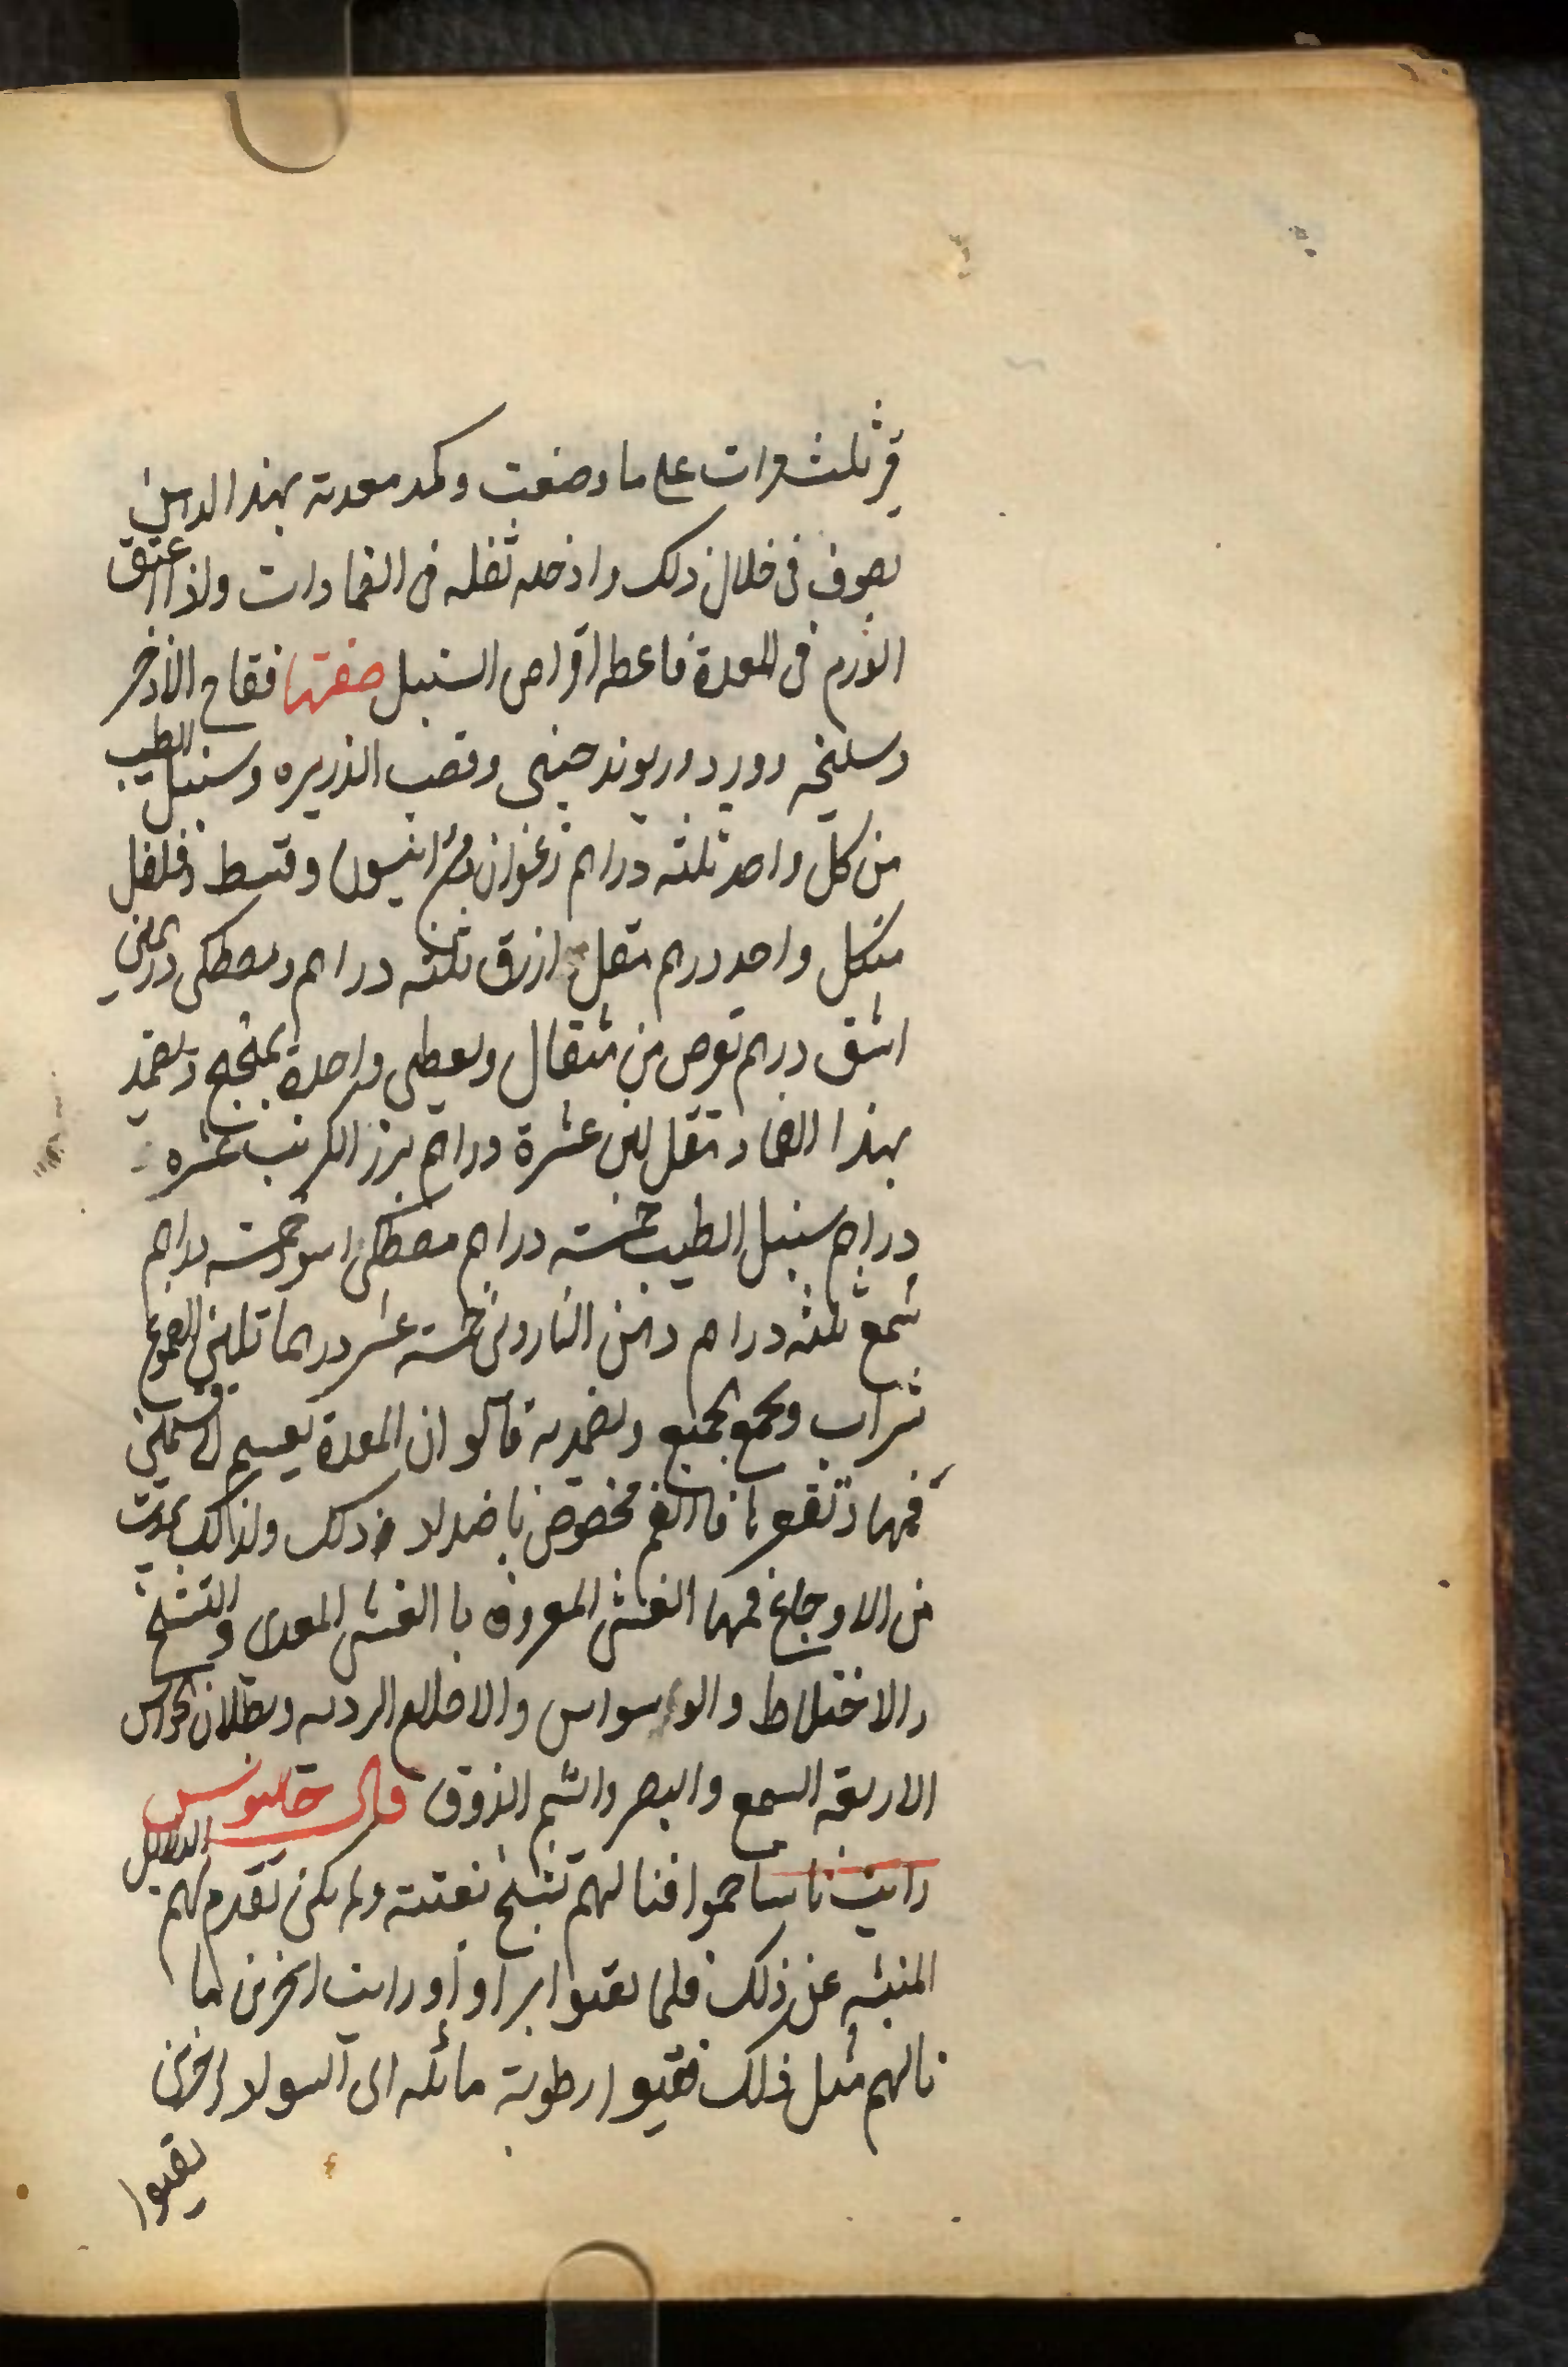 ثلث مرات على ما وصفت وكمد معدته بهذا الدهن
بصوف فى خلال ذلك وادخله ثفله فى الضمادات واذا عتق
الورم فى المعدة فاعطه اقراص السنبل صفتها فقاح الاذخر
وسليخه وورد وريوند صينى وقصب الذريره وسنبل الطيب
من كل واحد ثلثه دراهم زعفران انيسون وقسط وفلفل
منكل واحد درهم مقل ازرق ثلثه دراهم ومصطكى درهمين
اشق درهم تقرص من مثقال ويعطى واحدة ويضمد
بهذا الضماد مقل لين عشرة دراهم بزر الكرنب عشره
دراهم سنبل الطيب خمسه دراهم مصطكى اسود خمسه دراهم
شمع ثلثه دراهم دهن الناردين خمسه عشر درهما تلين الصموغ
بشراب ويجمع الجميع ويضمد به قالو ان المعدة يقسم الى قسمين
فمها وقعرها فالفم مخصوص باضداد ذلك ولذالك يحدث
من الاوجاع فمها الغشى المعروف با الغشى المعدى والتشنج
والاختلاط والوسواس والاحلام الرديه وبطلان الحواس
الاربعه السمع والبصر والشم الذوق قال جالينوس
رايت ناسا حموا فنالهم تشنج بغتته ولم يكن تقدم لهم الدلايل
المنبئه عن ذلك فلما تقيوا براوا ورايت اخرين لما
نالهم مثل ذلك فتقيوا رطوبة مائله الى السواد واخرين
تقيوا